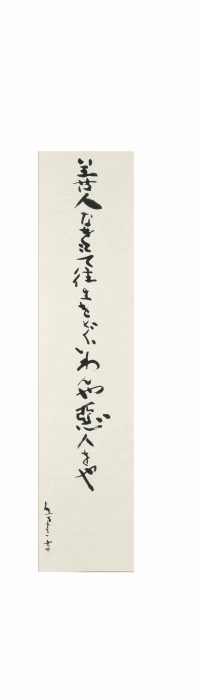 善人なをもて往生をとぐいわんや惡人をや